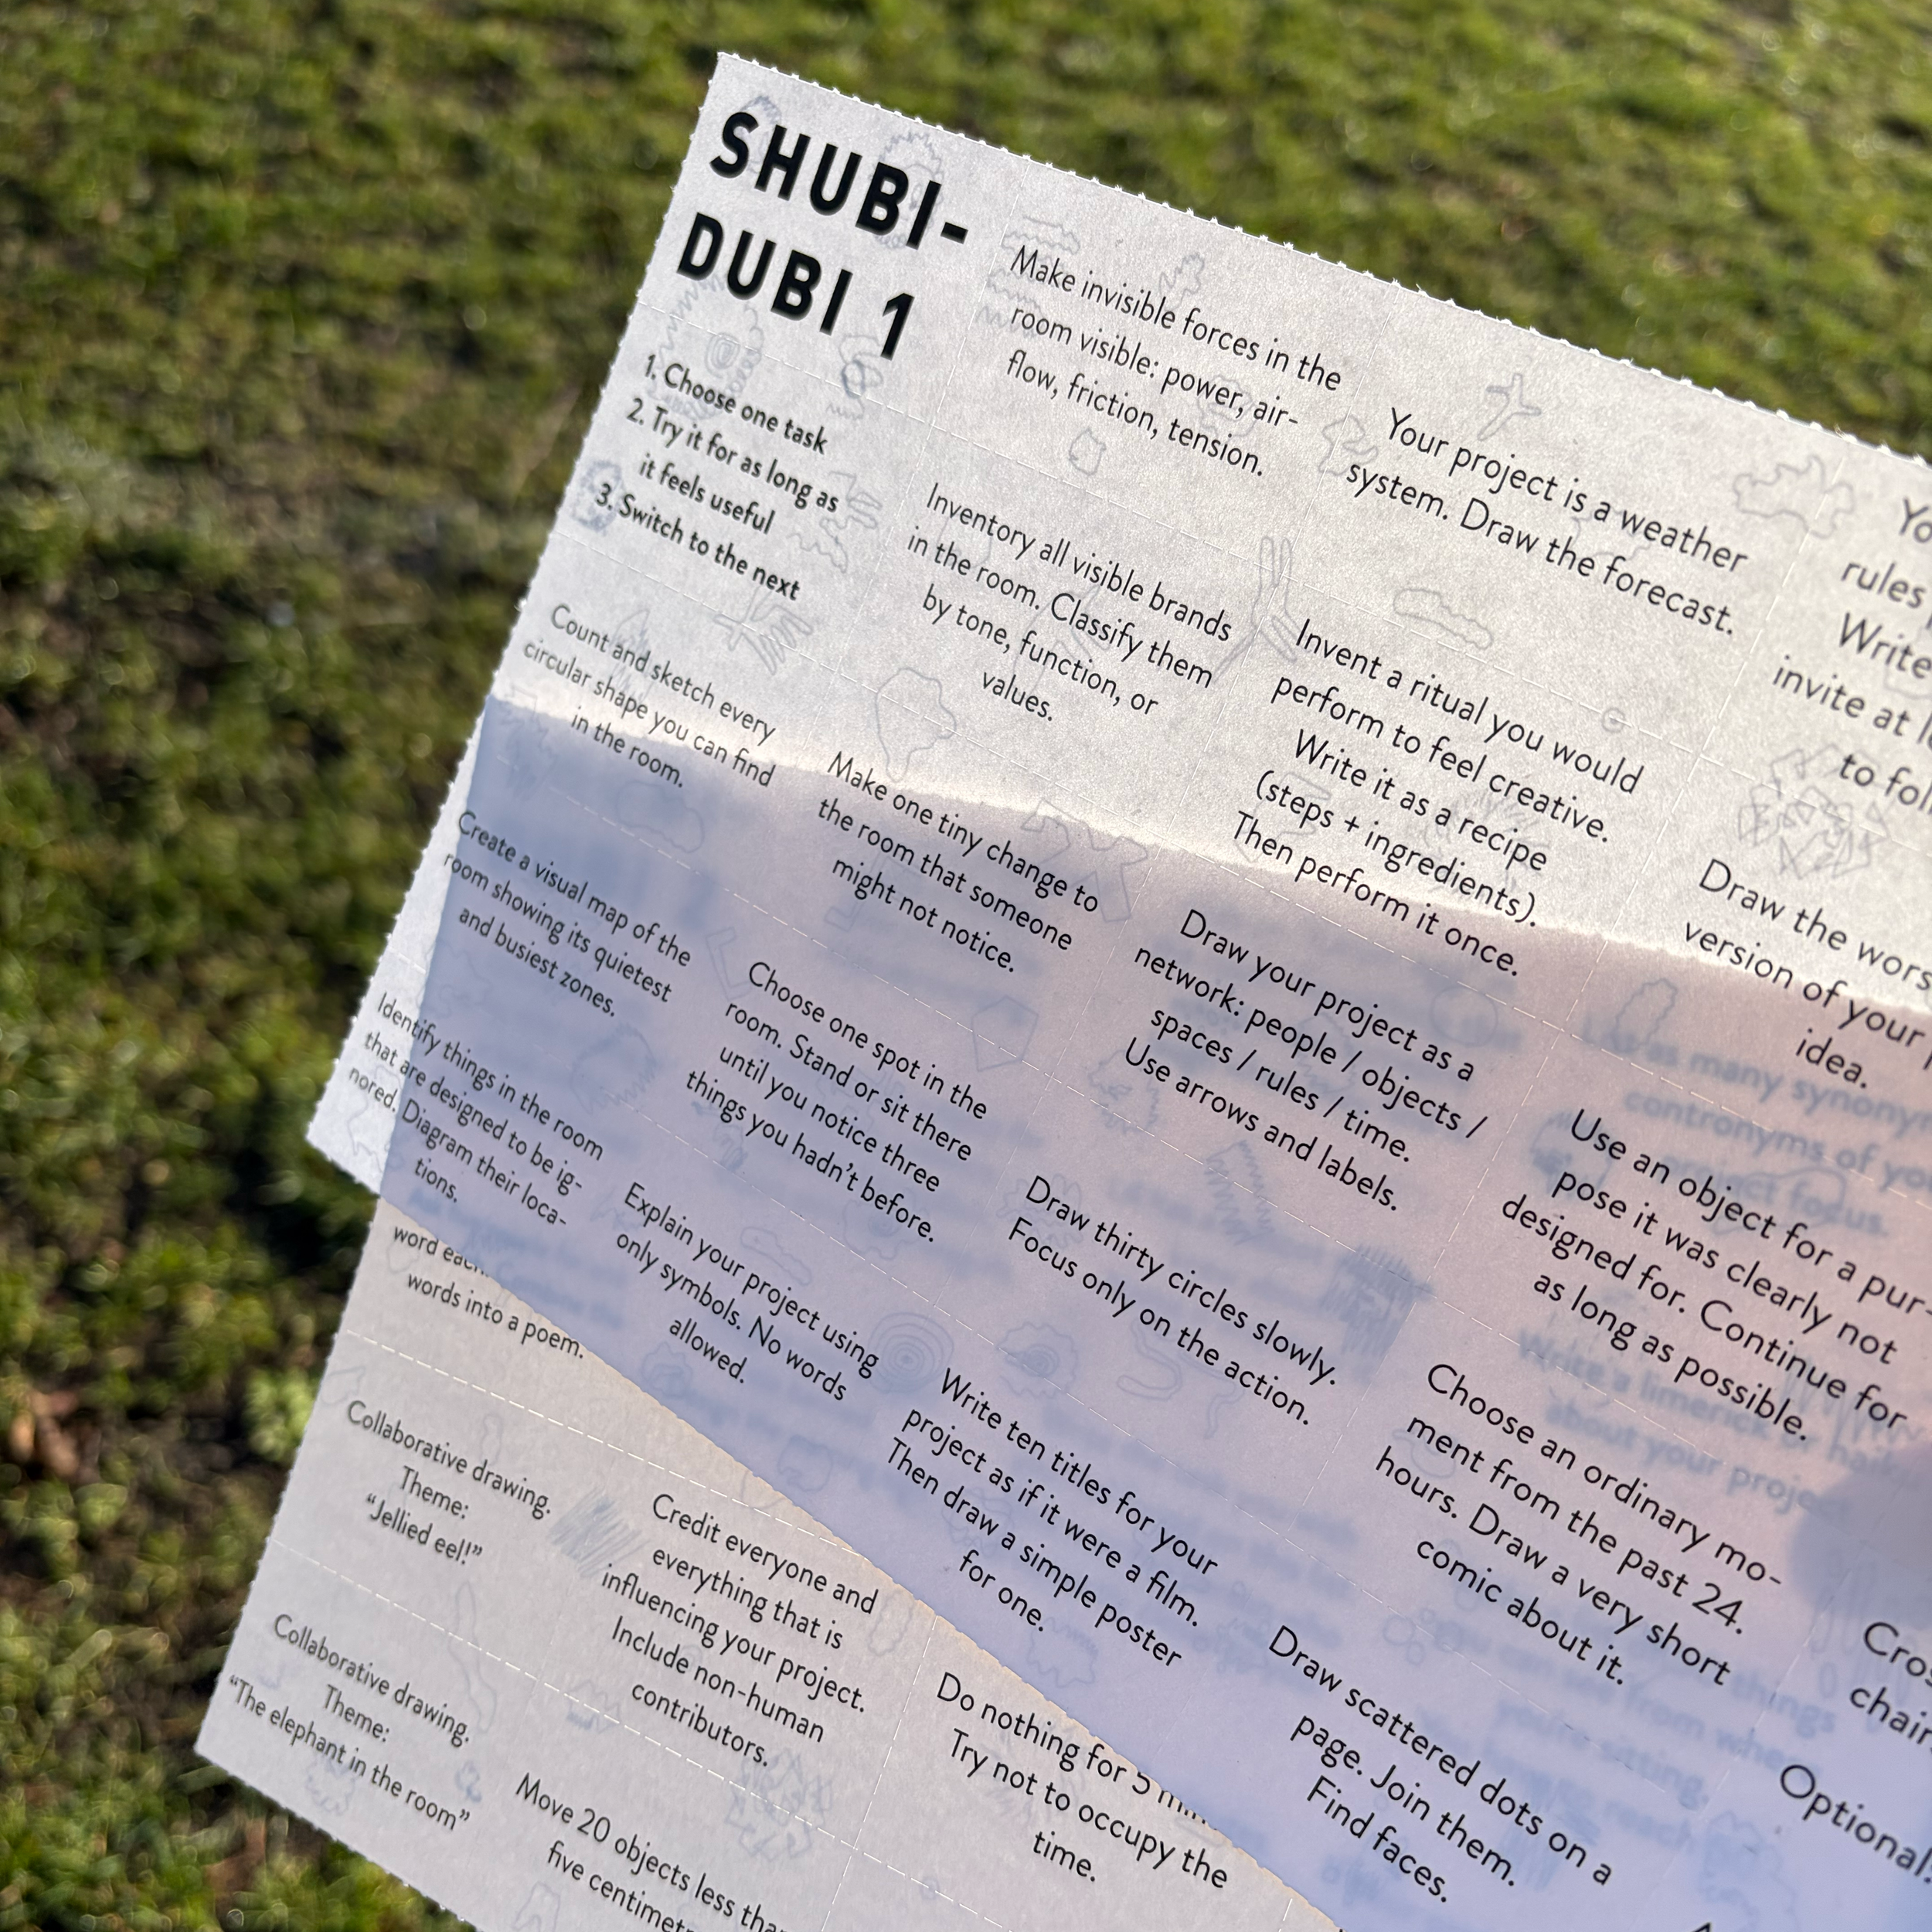 SHUBI-
DUBI 1
1. Choose one task
2. Try it for as long as
it feels useful
3. Switch to the next
Count and sketch every
circular shape you can find
in the room.
Create a visual map of the
room showing its quietest
and busiest zones.
Identify things in the room
that are designed to be ig-
nored. Diagram their loca-
tions.
word each.
words into a poem.
Collaborative drawing.
Theme:
“Jellied eel!”
Collaborative drawing.
Theme:
“The elephant in the room”
Make invisible forces in the
room visible: power, air-
flow, friction, tension.
Inventory all visible brands
in the room. Classify them
by tone, function, or
values.
Make one tiny change to
the room that someone
might not notice.
Choose one spot in the
room. Stand or sit there
until you notice three
things you hadn’t before.
Explain your project using
only symbols. No words
allowed.
Credit everyone and
everything that is
influencing your project.
Include non-human
contributors.
Move 20 objects less than
five
Your project is a weather
system. Draw the forecast.
Invent a ritual you would
perform to feel creative.
Write it as a recipe
(steps + ingredients).
Then perform it once.
Draw your project as a
network: people / objects /
spaces / rules / time.
Use arrows and labels.
Draw thirty circles slowly.
Focus only on the action.
Write ten titles for your
project as if it were a film.
Then draw a simple poster
for one.
Do nothing for 5
Try not to occupy the
time.
rules
Write
invite at
to
Draw the
version of your
idea.
Use an object for a pur-
pose it was clearly not
designed for. Continue for
as long as possible.
Choose an ordinary mo-
ment from the past 24
hours. Draw a very short
comic about it.
Draw scattered dots on a
page. Join them.
Find faces.
Optional:
as many
of
project focus.
Write a limerick or
about your
things
from
you're sitting.